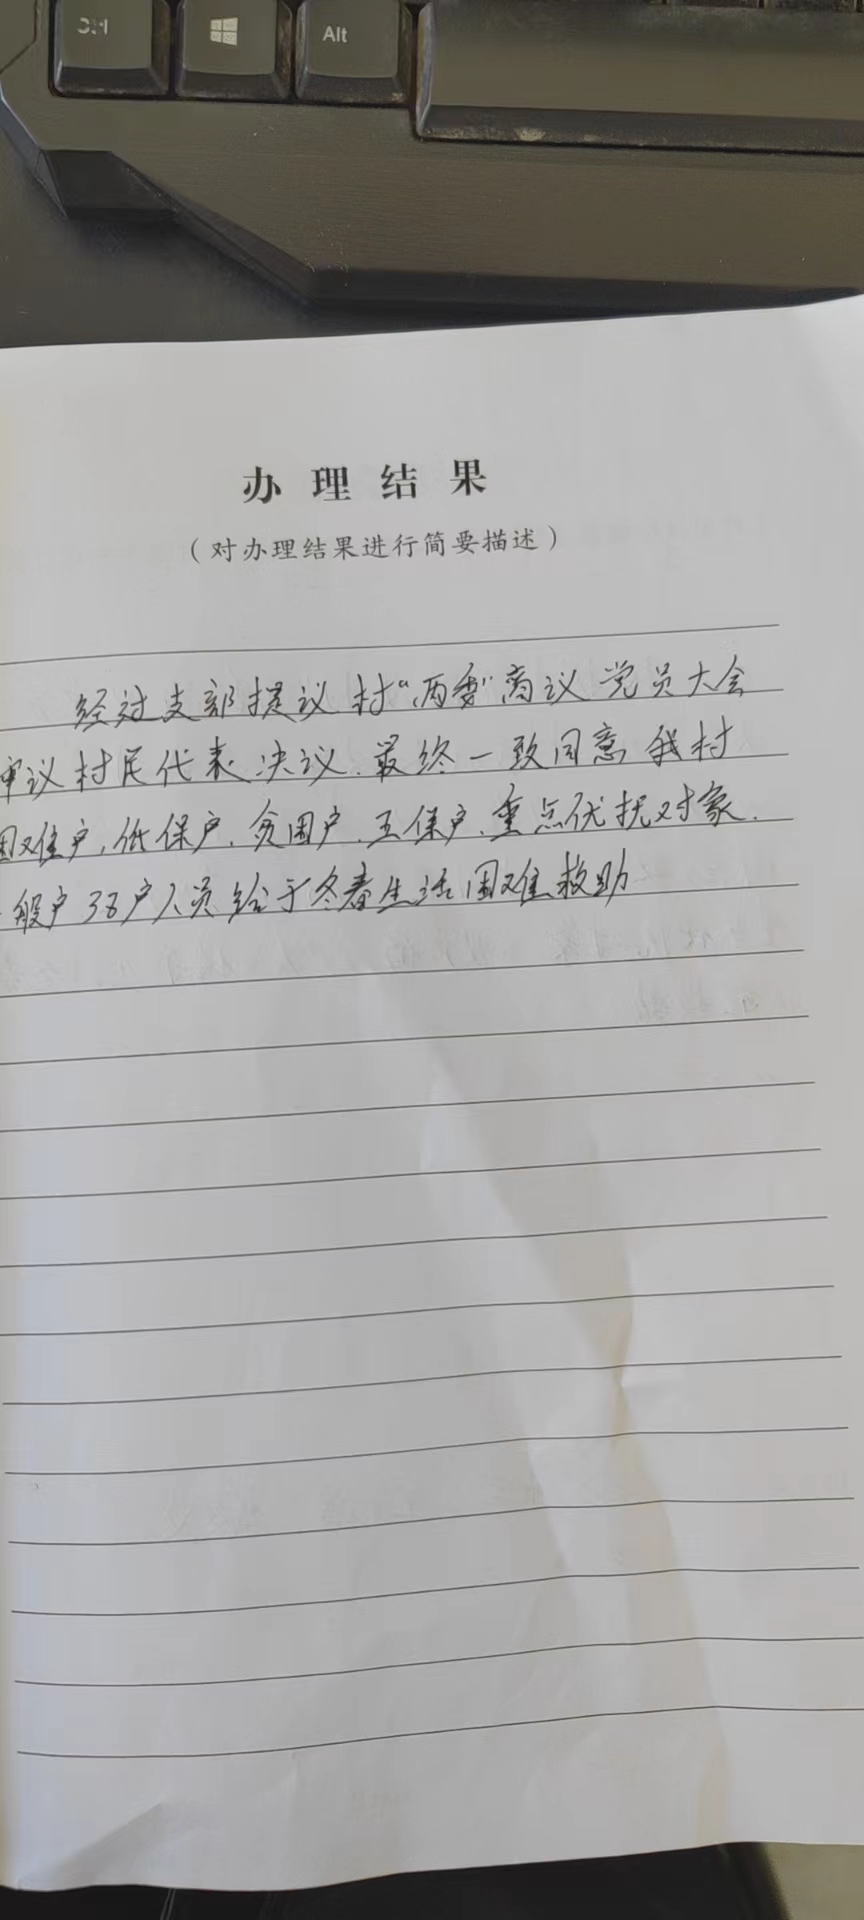 Ctrl
Alt
办理结果
（对办理结果进行简要描述）
经过支部提议村“两委”商议党员大会
审议村民代表决议.最终一致同意我村
困难户,低保户.贫困户.五保户.重点优抚对象.
一般户38户人员给于冬春生活困难救助